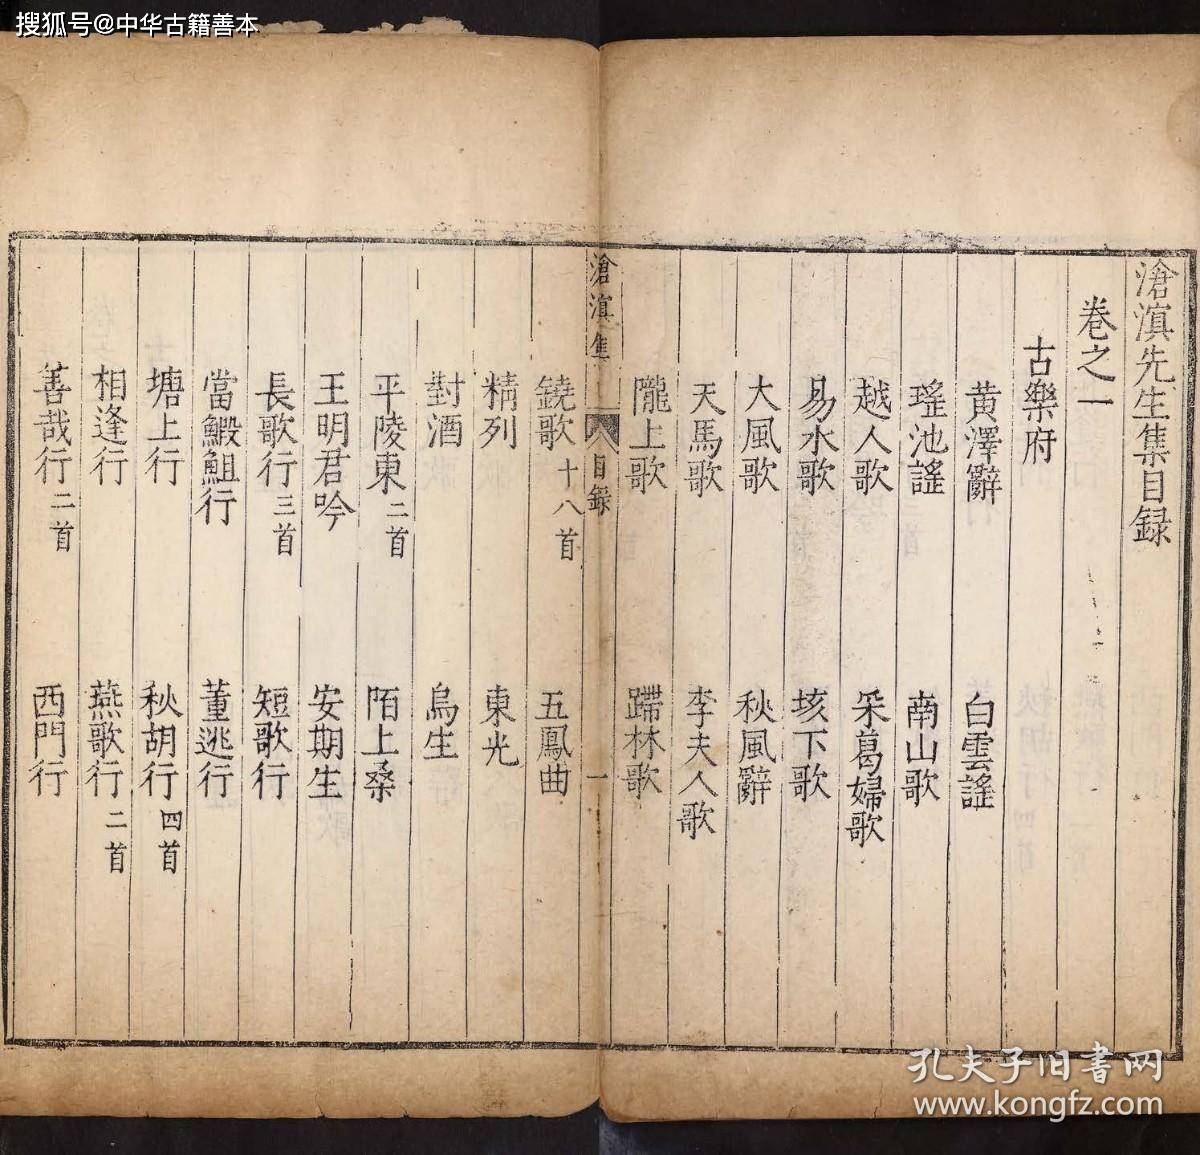 搜狐号@中华古籍善本
滄溟先生集目録
卷之一
古樂府
黃澤辭 白雲謠
瑤池謠 南山歌
越人歌 采葛婦歌
易水歌 垓下歌
大風歌 秋風辭
天馬歌 李夫人歌
隴上歌 蹛林歌
滄溟集 目録 一
鐃歌十八首 五鳳曲
精列 東光
對酒 烏生
平陵東二首 陌上桑
王明君吟 安期生
長歌行三首 短歌行
當鰕䱇行 董逃行
塘上行 秋胡行四首
相逢行 燕歌行二首
善哉行二首 西門行
孔夫子旧书网
www.kongfz.com